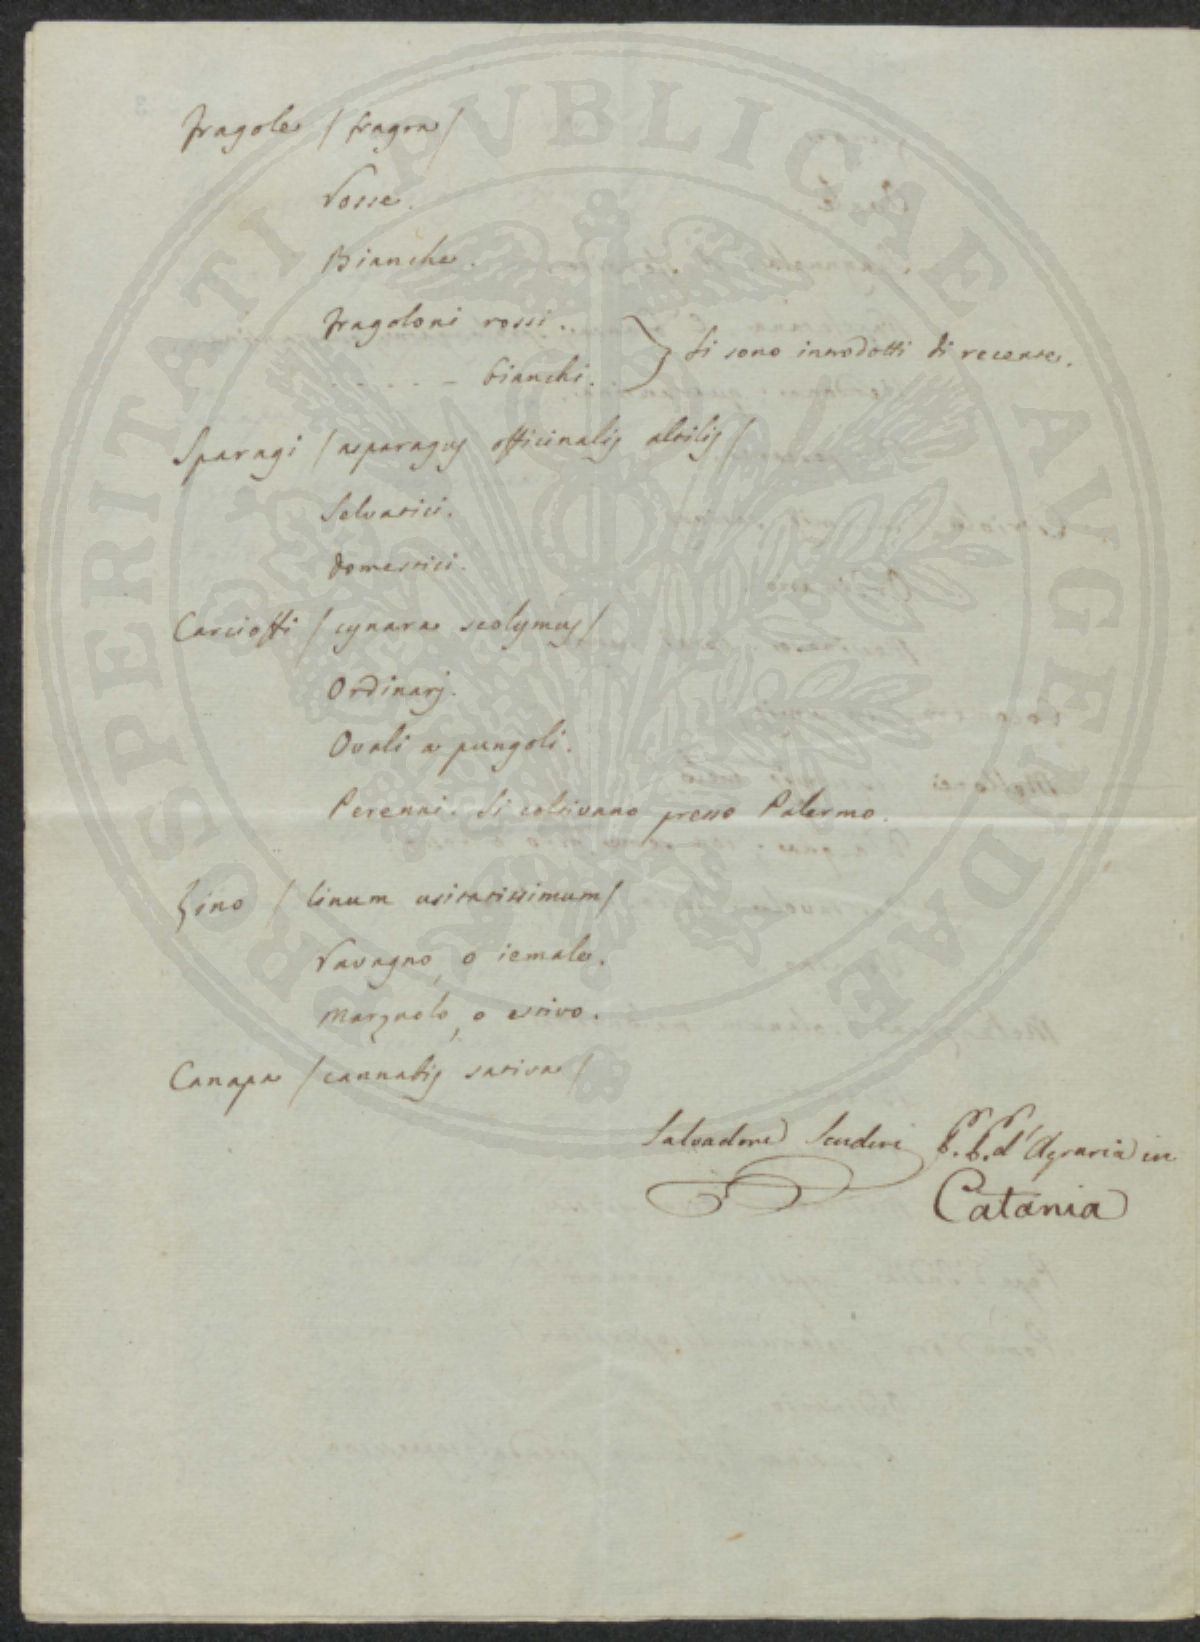 fragole / fragra /
rosse.
Bianche.
fragoloni rossi..
- - - - - bianchi. } Si sono introdotti di recente.
Sparagi / asparagus officinalis altilis /
Selvatici.
domestici.
Carcioffi / cynara scolymus /
Ordinarj.
Ovali a pungoli.
Perenni. Si coltivano presso Palermo.
Lino / linum usitatissimum /
Vavagno, o iemale.
Marzuolo, o estivo.
Canapa / cannabis sativa /
Salvadore Scuderi P. P. d'Agraria in
Catania
PROSPERITATI PVBLICAE AVGENDAE